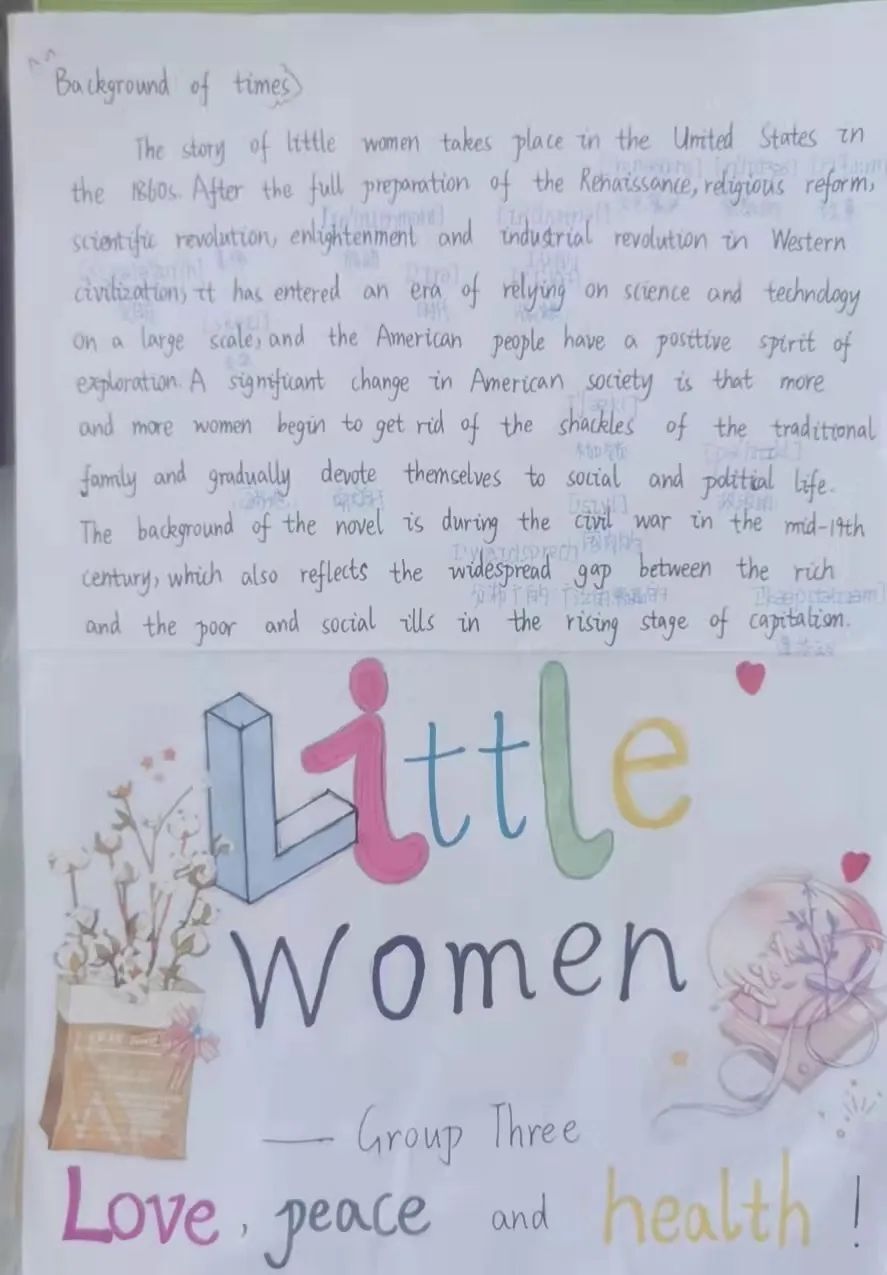 Background of times
The story of little women takes place in the United States in
the 1860s. After the full preparation of the Renaissance, religious reform,
scientific revolution, enlightenment and industrial revolution in Western
civilization, it has entered an era of relying on science and technology
on a large scale, and the American people have a positive spirit of
exploration. A significant change in American society is that more
and more women begin to get rid of the shackles of the traditional
family and gradually devote themselves to social and political life.
The background of the novel is during the civil war in the mid-19th
century, which also reflects the widespread gap between the rich
and the poor and social ills in the rising stage of capitalism.
Little
Women
— Group Three
Love, peace and health!